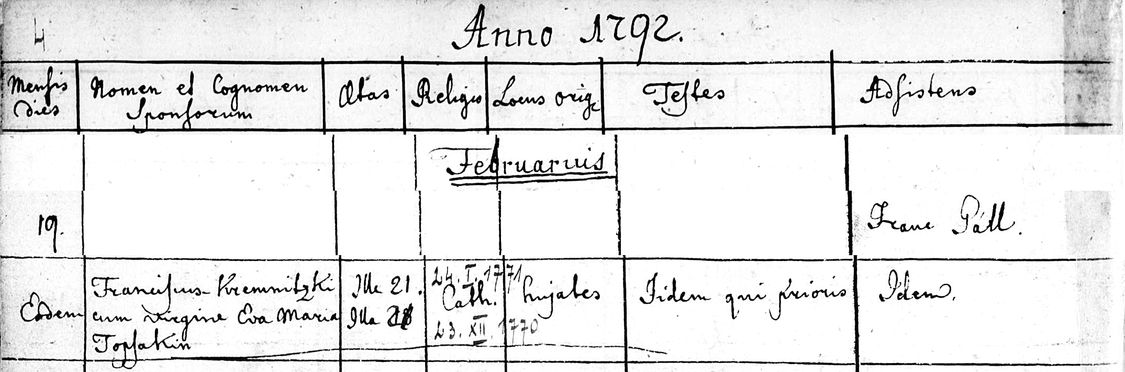 4
Anno 1792.
Mensis dies
Nomen et Cognomen Sponsorum
Ætas
Religio
Locus orig.
Testes
Adsistens
Februarius
19.
Franc Páll.
Eodem
Franciscus Kremnitzki
cum virgine Eva Maria
Topsakin
Ille 21.
Illa
24. I. 1771
Cath.
23. XII. 1770
hujates
Iidem qui prioris
Idem.